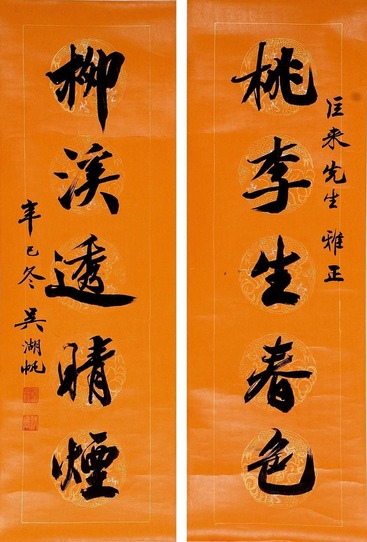 桃李生春色
匡来先生雅正
柳溪透晴煙
辛巳冬吴湖帆